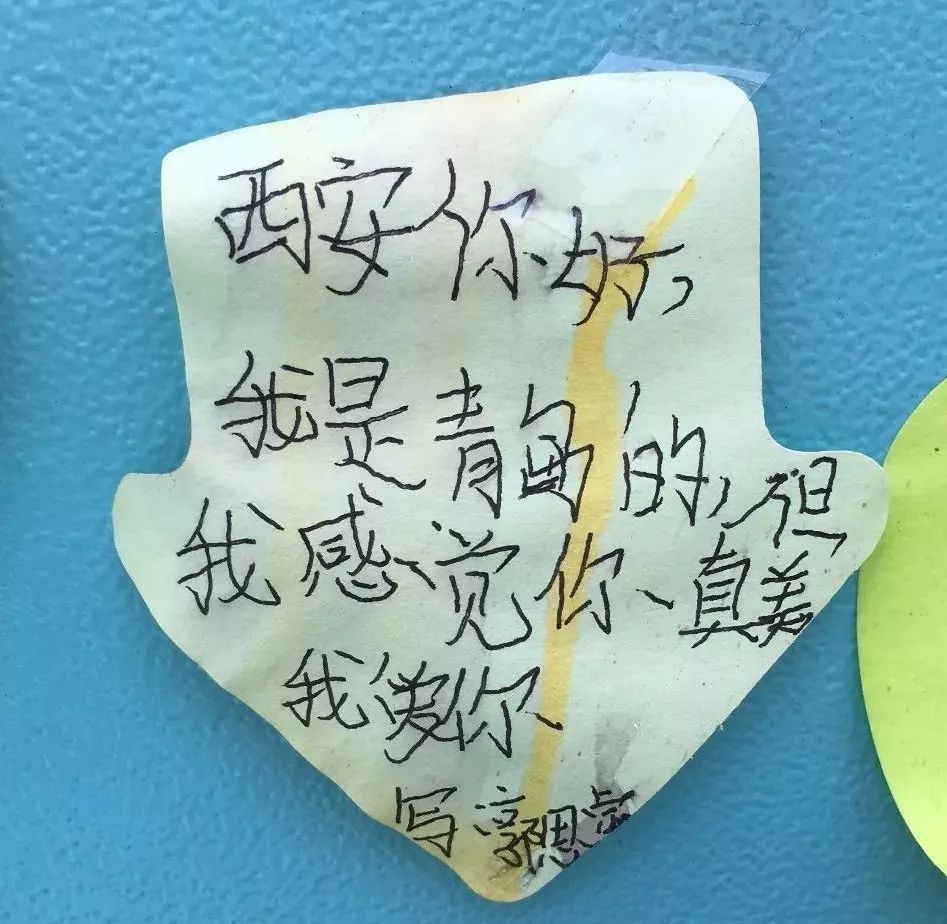 西安你好,
我是青岛的,但
我感觉你、真美
我爱你、
写:郭思